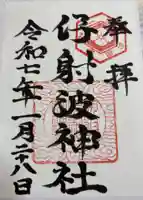 奉拝
伊射波神社
令和七年一月二十八日